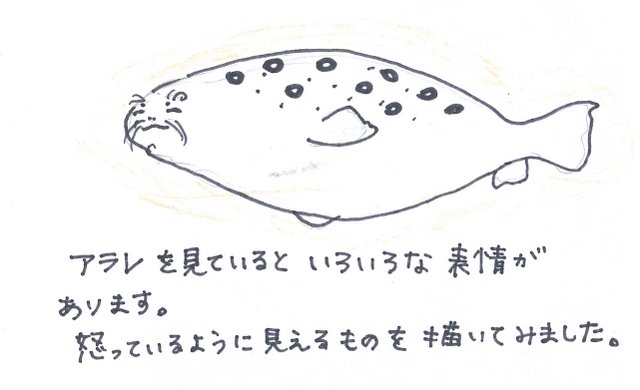 アラレを見ていると いろいろな 表情が
あります。
怒っているように見えるものを描いてみました。